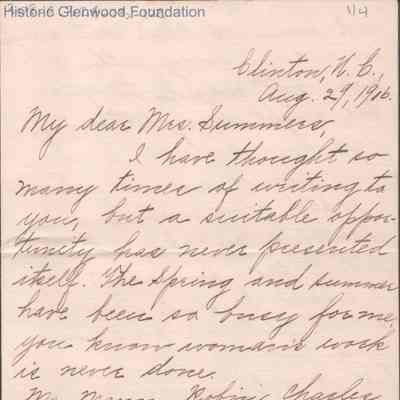 Historic Glenwood Foundation
1/4
Clinton, N. C.,
Aug. 29, 1906.
My dear Mrs. Summers,
I have thought so
many times of writing to
you, but a suitable oppor-
tunity has never presented
itself. The spring and summer
have been so busy for me,
you know woman's work
is never done.
Robin, Charley